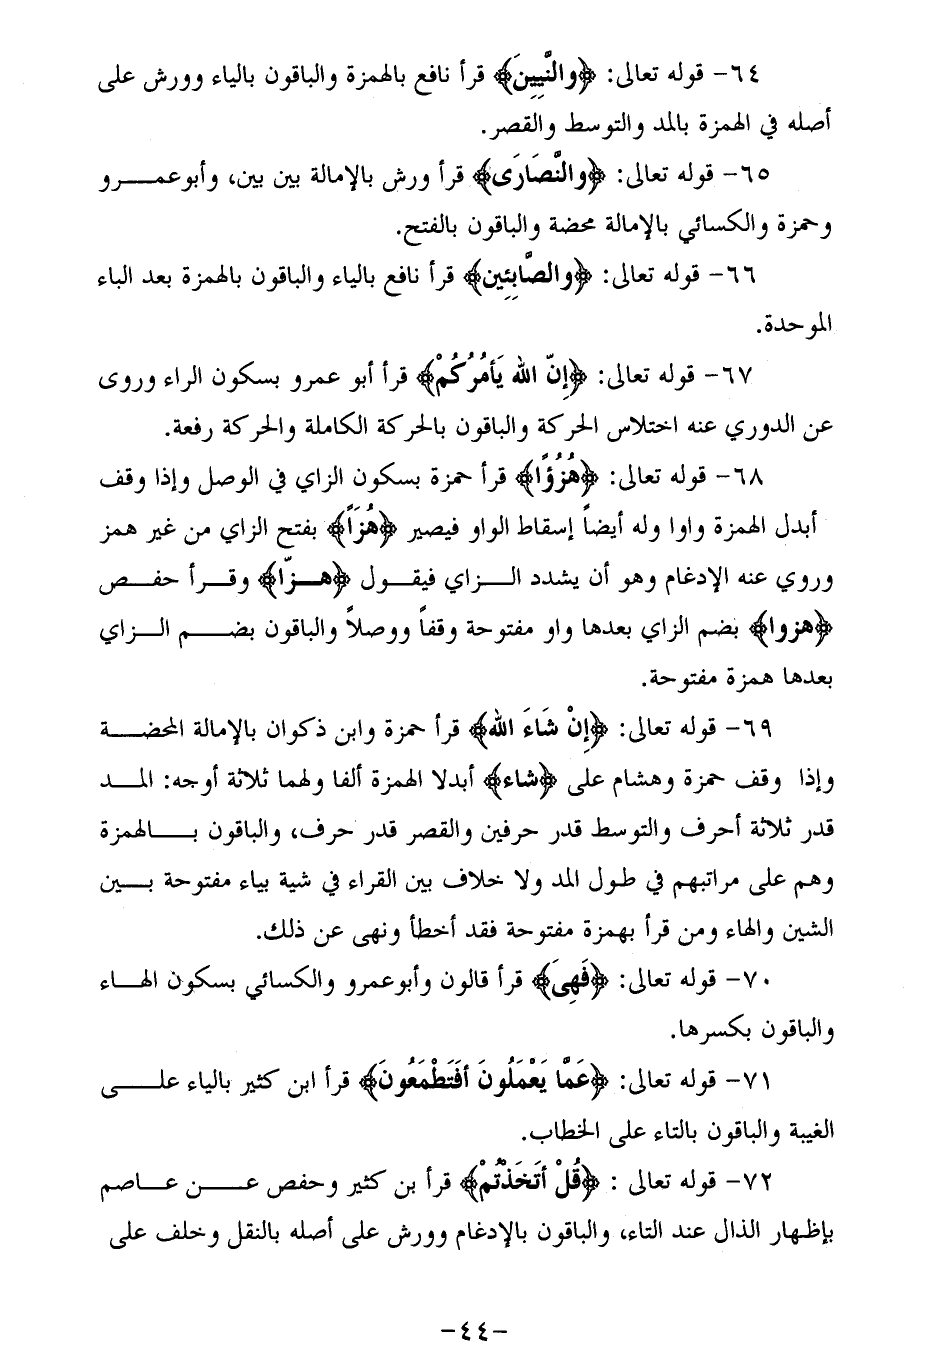 ٦٤- قوله تعالى: ﴿والنَّبِيينَ﴾ قرأ نافع بالهمزة والباقون بالياء وورش على
أصله في الهمزة بالمد والتوسط والقصر.
٦٥- قوله تعالى: ﴿والنَّصَارَى﴾ قرأ ورش بالإمالة بين بين، وأبوعمـــرو
وحمزة والكسائي بالإمالة محضة والباقون بالفتح.
٦٦- قوله تعالى: ﴿والصَّابِئِين﴾ قرأ نافع بالياء والباقون بالهمزة بعد الباء
الموحدة.
٦٧- قوله تعالى: ﴿إِنّ الله يَأمُرُكُمْ﴾ قرأ أبو عمرو بسكون الراء وروى
عن الدوري عنه اختلاس الحركة والباقون بالحركة الكاملة والحركة رفعة.
٦٨- قوله تعالى: ﴿هُزُؤًا﴾ قرأ حمزة بسكون الزاي في الوصل وإذا وقف
أبدل الهمزة واوا وله أيضاً إسقاط الواو فيصير ﴿هُزَاً﴾ بفتح الزاي من غير همز
وروي عنه الإدغام وهو أن يشدد الـــزاي فيقـــول ﴿هـــزّا﴾ وقـــرأ حفـــص
﴿هزوا﴾ بضم الزاي بعدها واو مفتوحة وقفاً ووصلاً والباقون بضـــم الـــزاي
بعدها همزة مفتوحة.
٦٩- قوله تعالى: ﴿إِنْ شَاءَ الله﴾ قرأ حمزة وابن ذكوان بالإمالة المحضـــة
وإذا وقف حمزة وهشام على ﴿شاء﴾ أبدلا الهمزة ألفا ولهما ثلاثة أوجه: المـــد
قدر ثلاثة أحرف والتوسط قدر حرفين والقصر قدر حرف، والباقون بـــالهمزة
وهم على مراتبهم في طول المد ولا خلاف بين القراء في شية بياء مفتوحة بـــين
الشين والهاء ومن قرأ بهمزة مفتوحة فقد أخطأ ونهى عن ذلك.
٧٠- قوله تعالى: ﴿فَهِيَ﴾ قرأ قالون وأبوعمرو والكسائي بسكون الهـــاء
والباقون بكسرها.
٧١- قوله تعالى: ﴿عَمَّا يَعْمَلُونَ أفَتَطْمَعُونَ﴾ قرأ ابن كثير بالياء علـــى
الغيبة والباقون بالتاء على الخطاب.
٧٢- قوله تعالى : ﴿قُلْ أَتَخَذْتُمْ﴾ قرأ بن كثير وحفص عـــن عـــاصم
بإظهار الذال عند التاء، والباقون بالإدغام وورش على أصله بالنقل وخلف على
-٤٤-